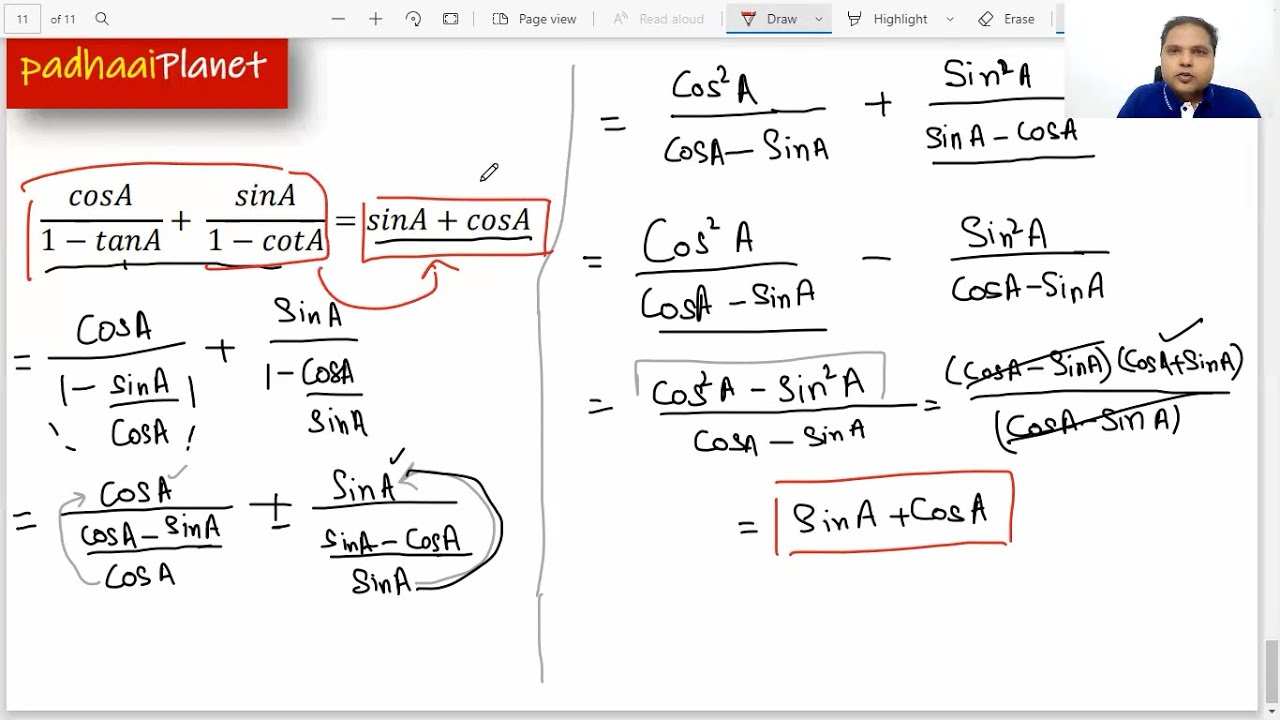 11 of 11 Page view Read aloud Draw Highlight Erase
padhaaiPlanet
cosA/(1 − tanA) + sinA/(1 − cotA) = sinA + cosA
= CosA/(1 − SinA/CosA) + SinA/(1 − CosA/SinA)
= CosA/((CosA − SinA)/CosA) + SinA/((SinA − CosA)/SinA)
= Cos²A/(CosA − SinA) + Sin²A/(SinA − CosA)
= Cos²A/(CosA − SinA) − Sin²A/(CosA − SinA)
= (Cos²A − Sin²A)/(CosA − SinA) = (CosA − SinA)(CosA + SinA)/(CosA − SinA)
= SinA + CosA